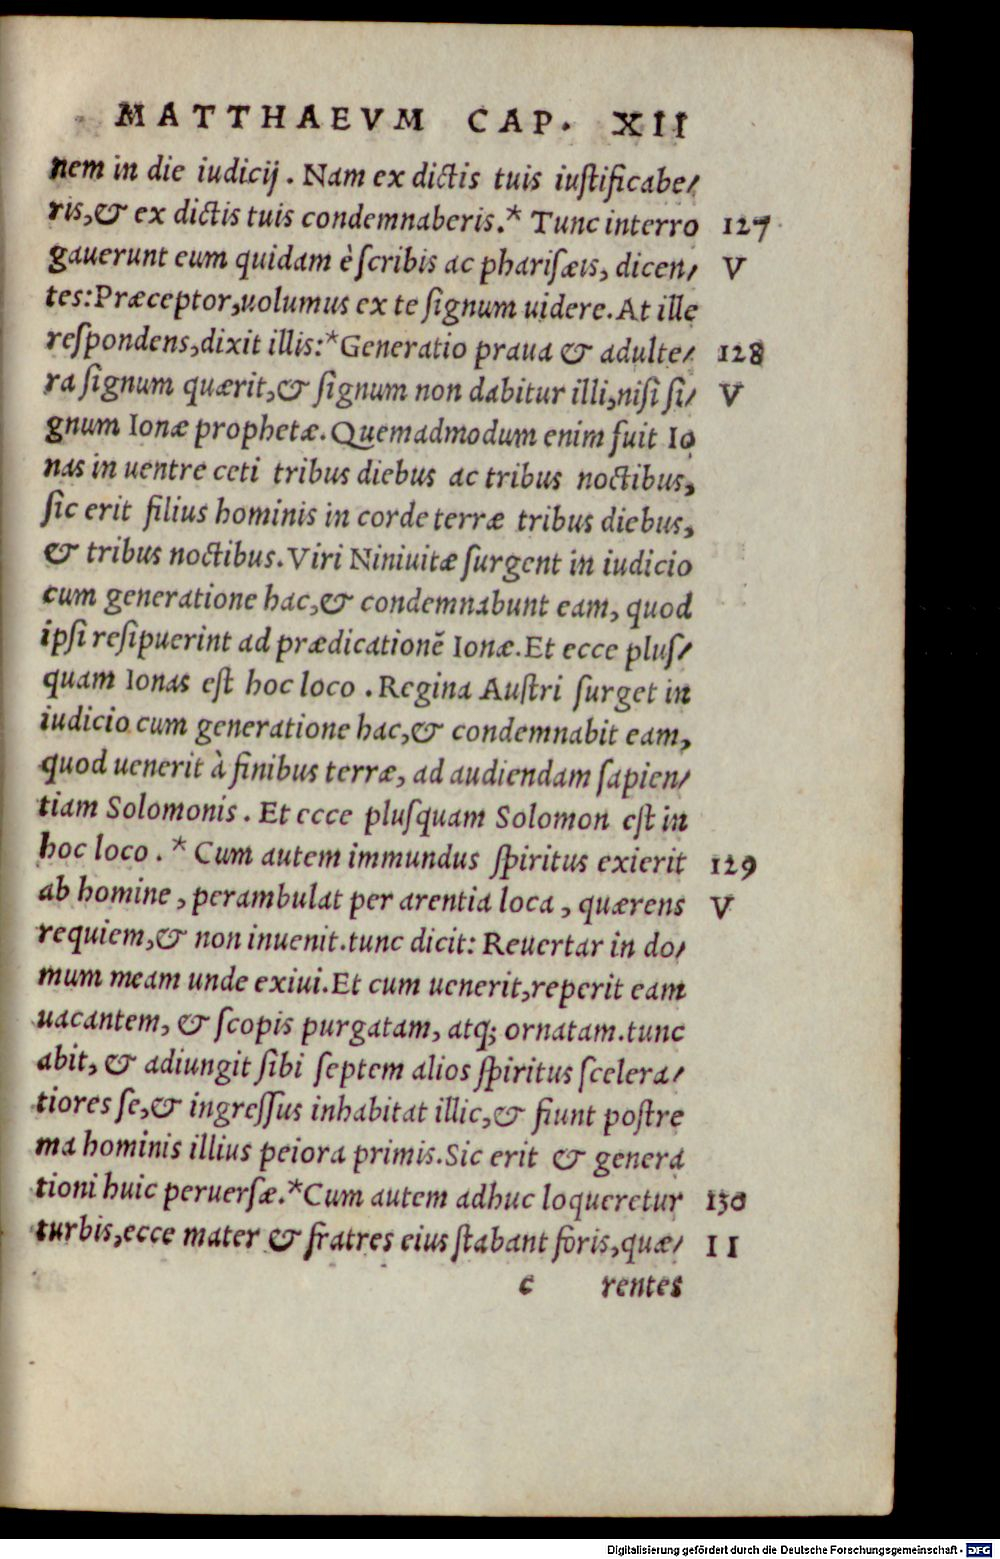 MATTHAEVM CAP. XII
nem in die iudicij. Nam ex dictis tuis iuſtificabe/
ris,& ex dictis tuis condemnaberis.* Tunc interro 127
gauerunt eum quidam è ſcribis ac phariſæis, dicen/ V
tes:Præceptor,uolumus ex te ſignum uidere.At ille
reſpondens,dixit illis:*Generatio praua & adulte/ 128
ra ſignum quærit,& ſignum non dabitur illi,niſi ſi/ V
gnum Ionæ prophetæ.Quemadmodum enim fuit Io
nas in uentre ceti tribus diebus ac tribus noctibus,
ſic erit filius hominis in corde terræ tribus diebus,
& tribus noctibus.Viri Niniuitæ ſurgent in iudicio
cum generatione hac,& condemnabunt eam, quod
ipſi reſipuerint ad prædicationẽ Ionæ.Et ecce pluſ/
quam Ionas eſt hoc loco .Regina Auſtri ſurget in
iudicio cum generatione hac,& condemnabit eam,
quod uenerit à finibus terræ, ad audiendam ſapien/
tiam Solomonis . Et ecce pluſquam Solomon eſt in
hoc loco . * Cum autem immundus ſpiritus exierit 129
ab homine , perambulat per arentia loca , quærens V
requiem,& non inuenit.tunc dicit: Reuertar in do/
mum meam unde exiui.Et cum uenerit,reperit eam
uacantem, & ſcopis purgatam, atq; ornatam.tunc
abit, & adiungit ſibi ſeptem alios ſpiritus ſcelera/
tiores ſe,& ingreſſus inhabitat illic,& fiunt poſtre
ma hominis illius peiora primis.Sic erit & genera
tioni huic peruerſæ.*Cum autem adhuc loqueretur 130
turbis,ecce mater & fratres eius ſtabant foris,quæ/ II
c rentes
Digitalisierung gefördert durch die Deutsche Forschungsgemeinschaft - DFG